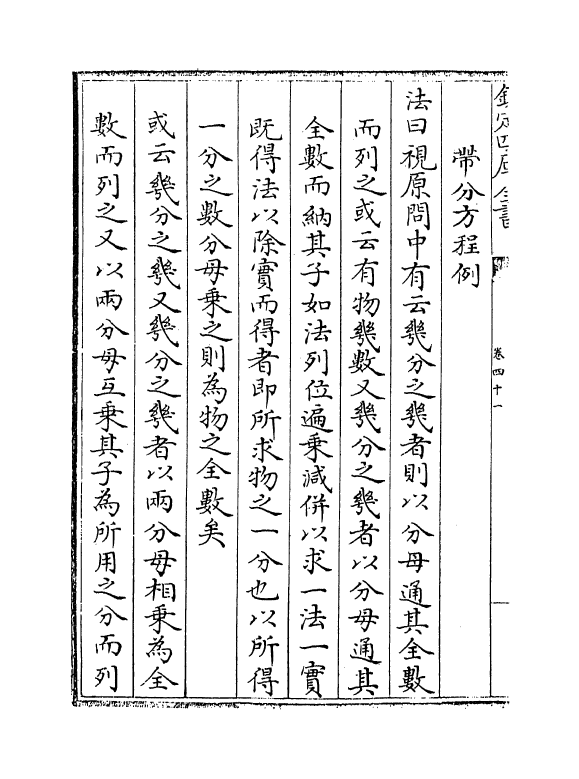 欽定四庫全書
卷四十一
帶分方程例
法曰視原問中有云幾分之幾者則以分母通其全數
而列之或云有物幾數又幾分之幾者以分母通其
全數而納其子如法列位遍乘減併以求一法一實
既得法以除實而得者即所求物之一分也以所得
一分之數分母乘之則為物之全數矣
或云幾分之幾又幾分之幾者以兩分母相乘為全
數而列之又以兩分母互乘其子為所用之分而列